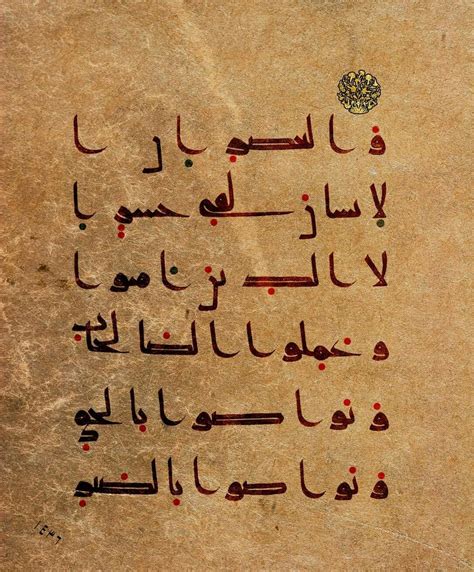 والعصر ان ا
لانسان لفي خسر ا
لا الذين امنوا
وعملوا الصالحات
وتواصوا بالحق
وتواصوا بالصبر
١٤٣٦